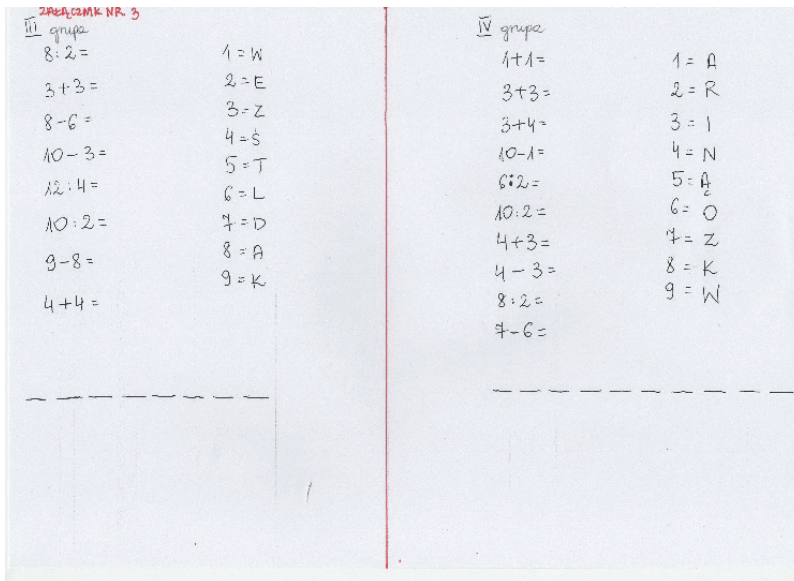 ZAŁĄCZNIK NR. 3
III grupa
8:2=
3+3=
8-6=
10-3=
12:4=
10:2=
9-8=
4+4=
1=W
2=E
3=Z
4=Ś
5=T
6=L
7=D
8=A
9=K
IV grupa
1+1=
3+3=
3+4=
10-1=
6:2=
10:2=
4+3=
4-3=
8:2=
7-6=
1=A
2=R
3=I
4=N
5=Ą
6=O
7=Z
8=K
9=W